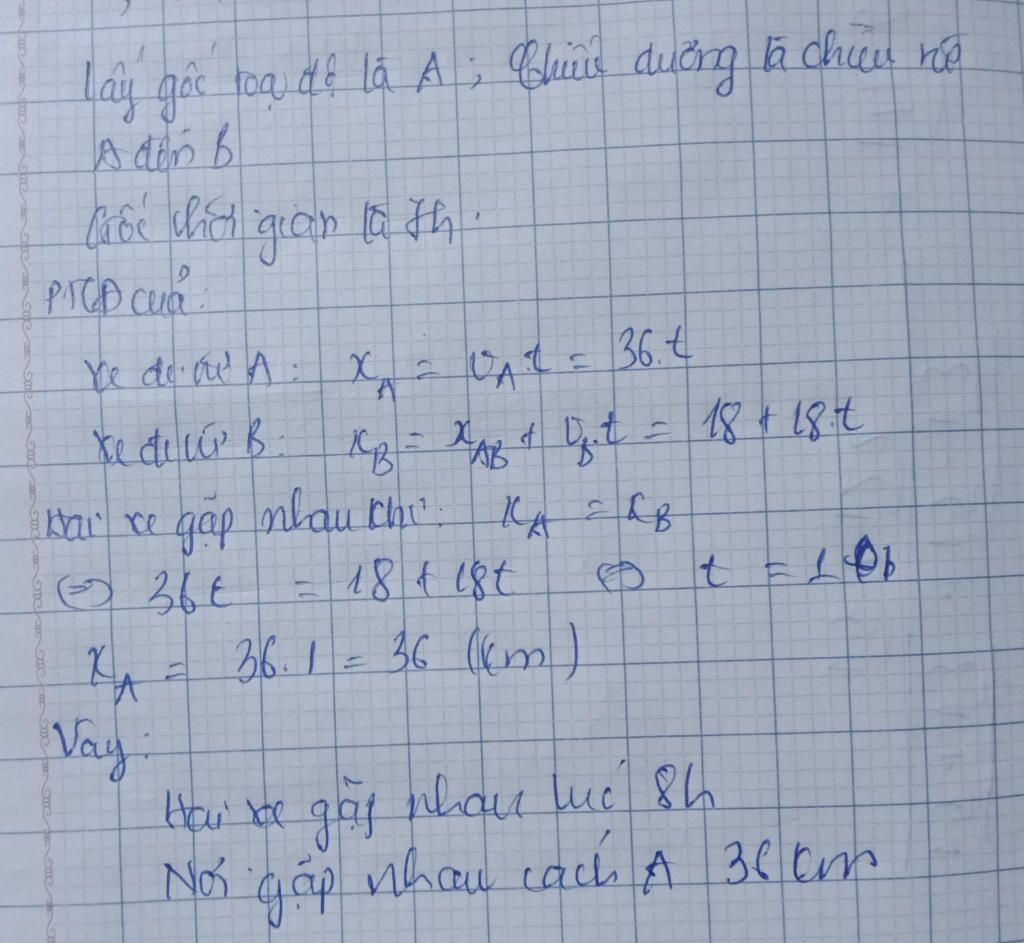 Lấy gốc toạ độ là A ; Chiều dương là chiều từ
A đến B
Gốc thời gian là 7h.
PTCĐ của:
Xe đi từ A: x_A = v_A.t = 36.t
Xe đi từ B: x_B = x_AB + v_B.t = 18 + 18.t
Hai xe gặp nhau khi: x_A = x_B
⇔ 36t = 18 + 18t ⇔ t = 1h
x_A = 36.1 = 36 (km)
Vay:
Hai xe gặp nhau lúc 8h
Nơi gặp nhau cách A 36 km